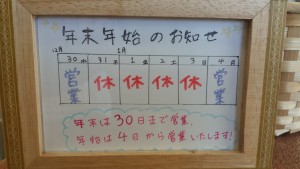 年末年始のお知せ
12月 1月
30水 31木 1金 2土 3日 4月
営業 休 休 休 休 営業
年末は30日まで営業、
年始は4日から営業いたします!